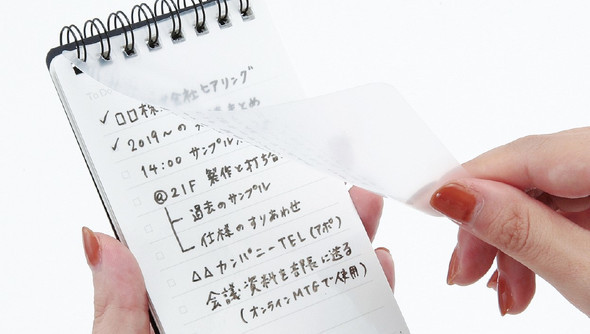 ToDo
✓ □□株 会社ヒアリング
✓ 2019〜の まとめ
14:00 サンプル
@21F 製作と打ち合
過去のサンプル
仕様のすりあわせ
△△カンパニーTEL(アポ)
会議資料を部長に送る
(オンラインMTGで使用)